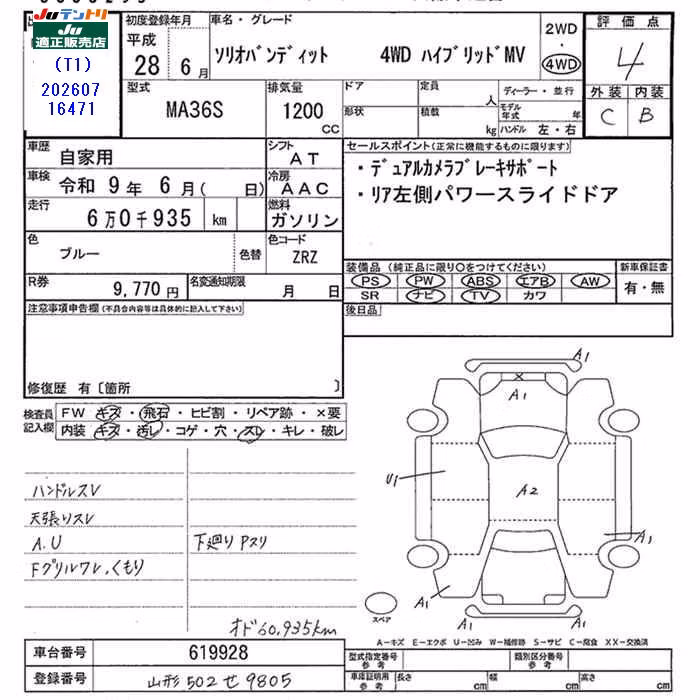 Juテントリ
Ju適正販売店
(T1)
202607
16471
初度登録年月
平成
28 6月
車名・グレード
ソリオバンディット 4WD ハイブリッドMV
2WD
・
4WD
評価点
4
外装 内装
C B
型式
MA36S
排気量
1200
CC
ドア
形状
定員
人
積載
kg
ディーラー・並行
モデル年式 年
ハンドル 左・右
車歴
自家用
シフト
AT
車検
令和 9年 6月( 日)
冷房
AAC
走行
6万0千935 km
燃料
ガソリン
色
ブルー
色替
色コード
ZRZ
R券
9,770円
名変通知期限
月 日
セールスポイント(正常に機能するものに限ります)
・デュアルカメラブレーキサポート
・リア左側パワースライドドア
装備品(純正品に限り○をつけてください)
PS PW ABS エアB AW
SR ナビ TV カワ
新車保証書
有・無
後日品
注意事項申告欄(不具合内容等は具体的に記入して下さい)
修復歴 有〔箇所 〕
検査員記入欄
FW キズ・飛石・ヒビ割・リペア跡・×要
内装 キズ・汚レ・コゲ・穴・スレ・キレ・破レ
ハンドルスレ
天張りスレ
A.U
Fグリルワレ、くもり
下廻りPスリ
オド60.935km
A1
A1
U1
A2
A1
A1
A1
スペア
A-キズ E-エクボ U-凹み W-補修跡 S-サビ C-腐食 XX-交換済
車台番号
619928
登録番号
山形502せ9805
型式指定番号
参考
類別区分番号
参考
車庫証明用
参考
長さ cm
幅 cm
高さ cm